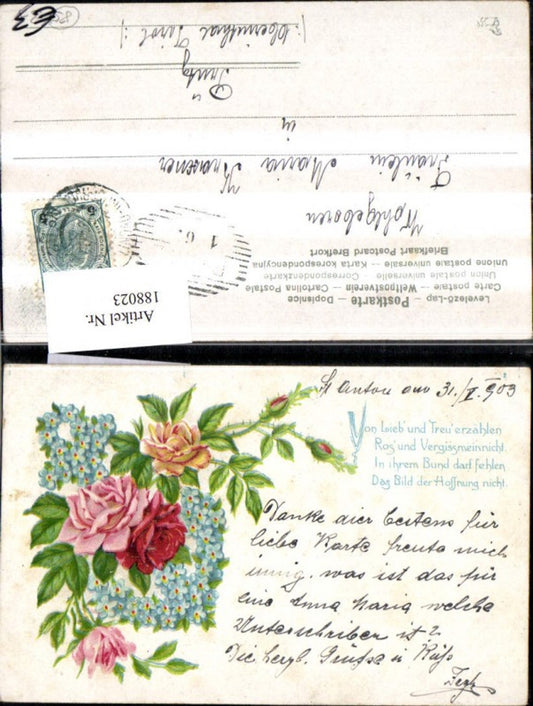 Levelező-Lap — Dopisnice
Postkarte
Carte postale — Weltpostverein — Cartolina Postale
Union postale universelle — Correspondenzkarte
Unione postale universale — Karta korespondencyjna
Briefkaart Postcard Brefkort
Wohlgeboren
Fräulein Maria
in
Prutz
Oberinnthal Tirol
1 6
Artikel Nr.
188023
St Anton am 31./V. 903
Von Lieb' und Treu' erzählen
Ros' und Vergissmeinnicht.
In ihrem Bund darf fehlen
Das Bild der Hoffnung nicht.
Danke dier bestens für
liebe Karte freute mich
innig. was ist das für
eine Anna Maria welche
Unterschrieben ist?
Vie herzl. Grüsse u Küss